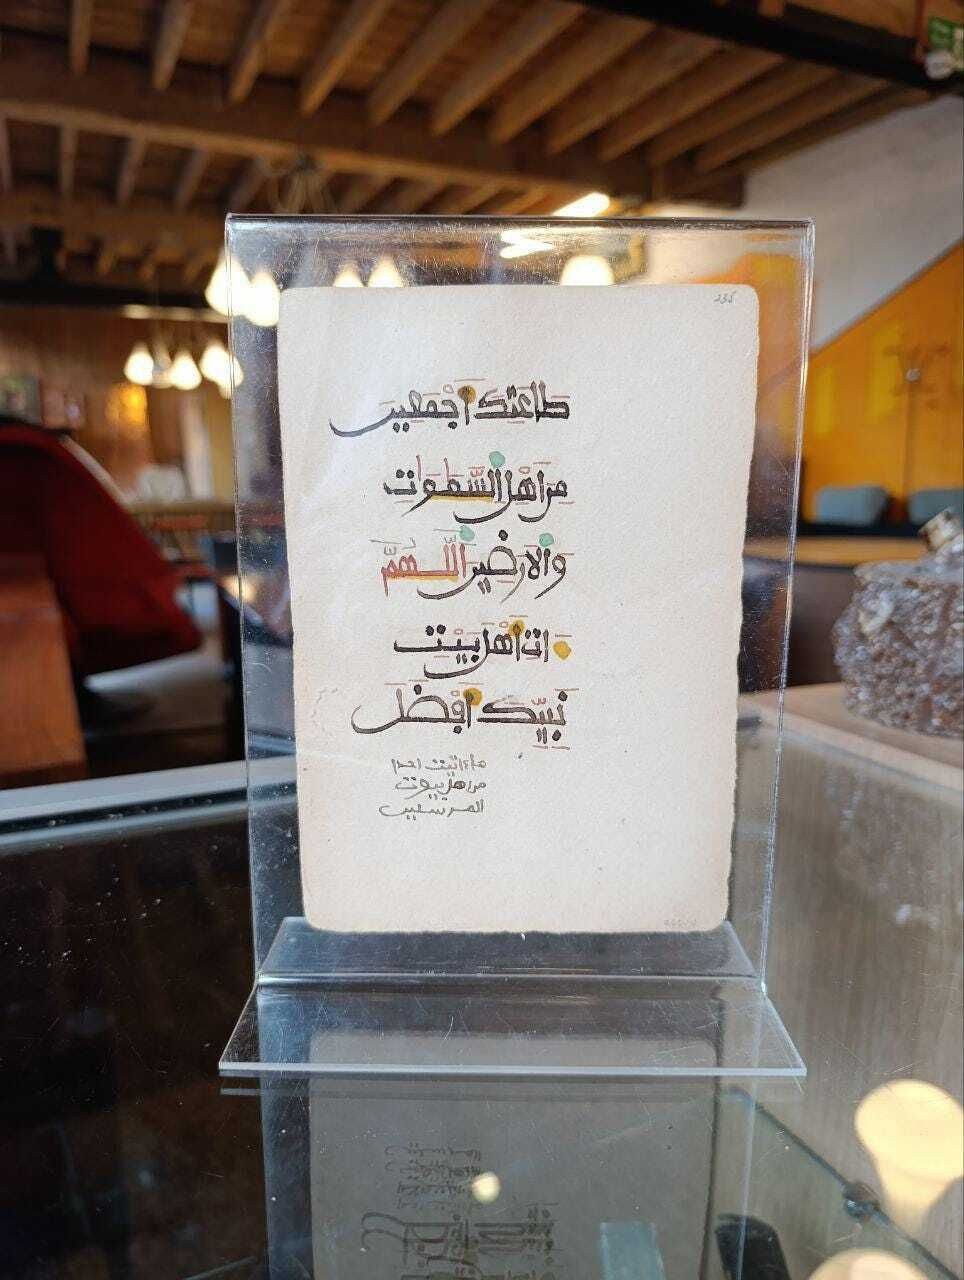 طَاعَتِكَ أَجْمَعِينَ
مِنَ اهْلِ السَّمَٰوَٰتِ
وَالَارَضِينَ اللَّهُمَّ
اتِ أَهْلَ بَيْتِ
نَبِيِّكَ أَفْضَلَ
ما ءاتيت احدا
من اهل بيوت
المرسلين